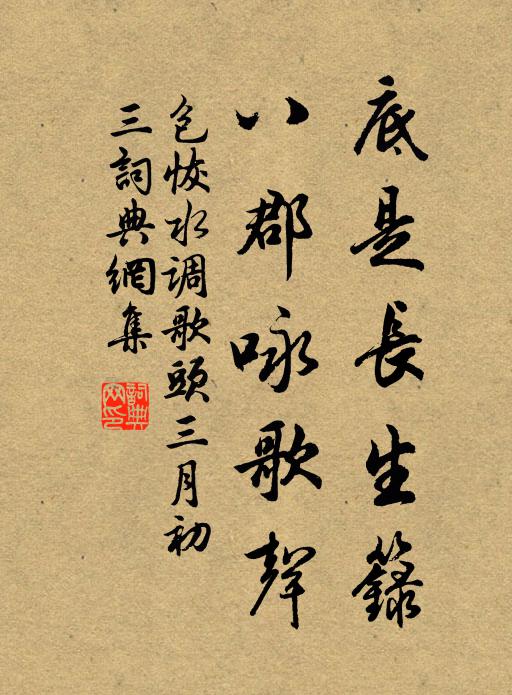 底是長生籙
八郡咏歌聲
包恢水调歌頭三月初
三詞典網集
詞典
网印